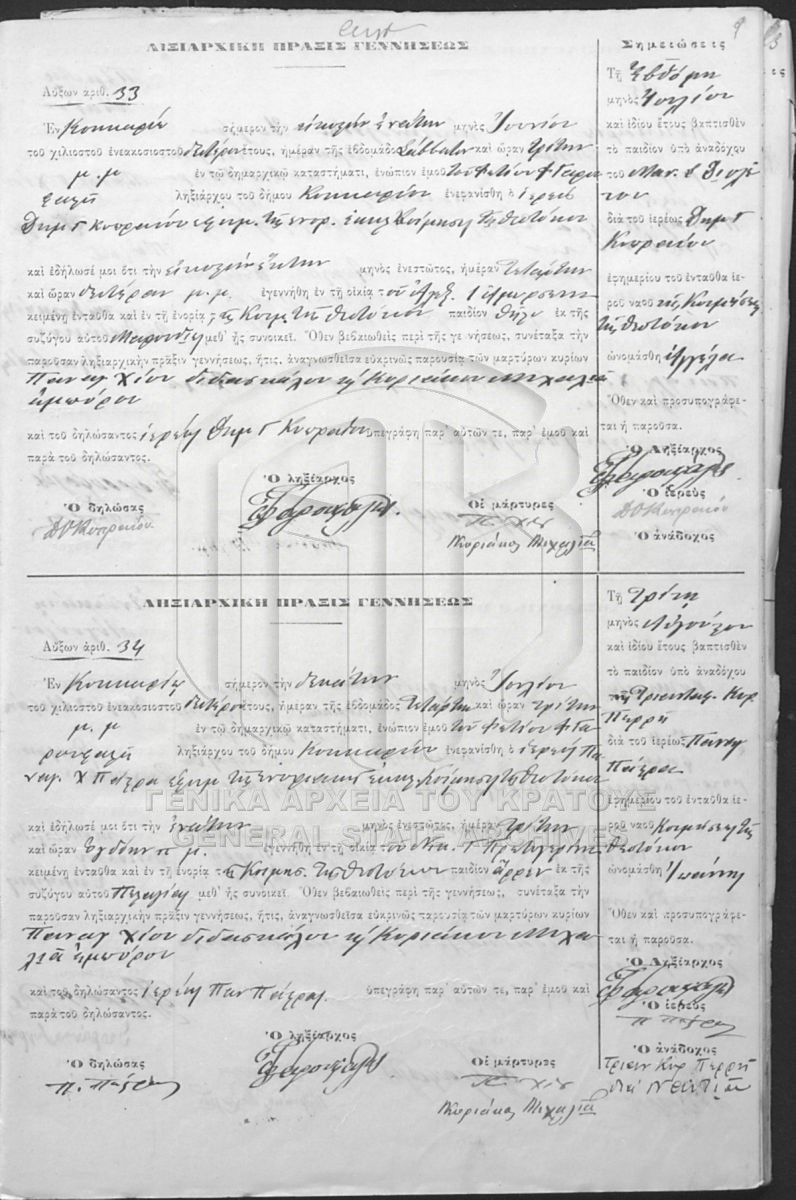 9
ΛΗΞΙΑΡΧΙΚΗ ΠΡΑΞΙΣ ΓΕΝΝΗΣΕΩΣ
Αὔξων ἀριθ. 33
Ἐν Κοκκαρίῳ σήμερον τὴν εἰκοστὴν ἐνάτην μηνὸς Ἰουνίου
τοῦ χιλιοστοῦ ἐνεακοσιοστοῦ δευτέρου ἔτους, ἡμέραν τῆς ἑβδομάδος Σάββατον καὶ ὥραν τρίτην
μ. μ. ἐν τῷ δημαρχικῷ καταστήματι, ἐνώπιον ἐμοῦ τοῦ Φωτίου Φ Γαρου
φαλῆ ληξιάρχου τοῦ δήμου Κοκκαρίου ἐνεφανίσθη ὁ ἱερεὺς
Δημ Γ Κυπραίου ἐφημ. τῆς ἐνορ. ἐκκλ Κοίμησις τῆς Θεοτόκου
καὶ ἐδήλωσέ μοι ὅτι τὴν εἰκοστὴν ἕκτην μηνὸς ἐνεστῶτος, ἡμέραν τετάρτην
καὶ ὥραν δευτέραν μ. μ. ἐγεννήθη ἐν τῇ οἰκίᾳ τοῦ Ἀλεξ.
κειμένῃ ἐνταῦθα καὶ ἐν τῇ ἐνορίᾳ τῆς Κοιμ τῆς Θεοτόκου παιδίον θῆλυ ἐκ τῆς
συζύγου αὐτοῦ μεθ' ἧς συνοικεῖ. Ὅθεν βεβαιωθεὶς περὶ τῆς γεννήσεως, συνέταξα τὴν
παροῦσαν ληξιαρχικὴν πρᾶξιν γεννήσεως, ἥτις, ἀναγνωσθεῖσα εὐκρινῶς παρουσίᾳ τῶν μαρτύρων κυρίων
Παναγ Χίου διδασκάλου κ Κυριάκου Μιχαλιᾶ
ἐμπόρου
καὶ τοῦ δηλώσαντος ἱερέως Δημ Γ Κυπραίου ὑπεγράφη παρ' αὐτῶν τε, παρ' ἐμοῦ καὶ
παρὰ τοῦ δηλώσαντος.
Ὁ ληξίαρχος
Ὁ δηλώσας
Οἱ μάρτυρες
Κυριάκος Μιχαλιᾶς
Σημειώσεις
Τῇ ἑβδόμῃ
μηνὸς Ἰουλίου
καὶ ἰδίου ἔτους βαπτισθὲν
τὸ παιδίον ὑπὸ ἀναδόχου
τοῦ Μαν.
διὰ τοῦ ἱερέως Δημ Γ
Κυπραίου
ἐφημερίου τοῦ ἐνταῦθα ἱε-
ροῦ ναοῦ τῆς Κοιμήσεως
τῆς Θεοτόκου
ὠνομάσθη Ἀγγέλα
Ὅθεν καὶ προσυπογράφε-
ται ἡ παροῦσα.
Ὁ Ληξίαρχος
Ὁ ἱερεὺς
Ὁ ἀνάδοχος
ΛΗΞΙΑΡΧΙΚΗ ΠΡΑΞΙΣ ΓΕΝΝΗΣΕΩΣ
Αὔξων ἀριθ. 34
Ἐν Κοκκαρίῳ σήμερον τὴν δεκάτην μηνὸς Ἰουλίου
τοῦ χιλιοστοῦ ἐνεακοσιοστοῦ δευτέρου ἔτους, ἡμέραν τῆς ἑβδομάδος τετάρτην καὶ ὥραν τρίτην
μ. μ ἐν τῷ δημαρχικῷ καταστήματι, ἐνώπιον ἐμοῦ τοῦ Φωτίου Φ Γα-
ρουφαλῆ ληξιάρχου τοῦ δήμου Κοκκαρίου ἐνεφανίσθη ὁ ἱερεὺς Πα
ναγ. Χ Πάτρα ἐφημ τῆς ἐνοριακῆς ἐκκλ Κοίμησις τῆς Θεοτόκου
ΓΕΝΙΚΑ ΑΡΧΕΙΑ ΤΟΥ ΚΡΑΤΟΥΣ
GENERAL STATE ARCHIVES
καὶ ἐδήλωσέ μοι ὅτι τὴν ἐνάτην μηνὸς ἐνεστῶτος, ἡμέραν τρίτην
καὶ ὥραν ὀγδόην π. μ. ἐγεννήθη ἐν τῇ οἰκίᾳ τοῦ Νικ.
κειμένῃ ἐνταῦθα καὶ ἐν τῇ ἐνορίᾳ τῆς Κοιμησ. τῆς Θεοτόκου παιδίον ἄρρεν ἐκ τῆς
συζύγου αὐτοῦ Πελαγίας μεθ' ἧς συνοικεῖ. Ὅθεν βεβαιωθεὶς περὶ τῆς γεννήσεως, συνέταξα τὴν
παροῦσαν ληξιαρχικὴν πρᾶξιν γεννήσεως, ἥτις, ἀναγνωσθεῖσα εὐκρινῶς παρουσίᾳ τῶν μαρτύρων κυρίων
Παναγ Χίου διδασκάλου κ Κυριάκου Μιχα
λιᾶ ἐμπόρου
καὶ τοῦ δηλώσαντος ἱερέως Παν Πάτρα ὑπεγράφη παρ' αὐτῶν τε, παρ' ἐμοῦ καὶ
παρὰ τοῦ δηλώσαντος.
Ὁ ληξίαρχος
Ὁ δηλώσας
Οἱ μάρτυρες
Κυριάκος Μιχαλιᾶς
Τῇ τρίτῃ
μηνὸς Αὐγούστου
καὶ ἰδίου ἔτους βαπτισθὲν
τὸ παιδίον ὑπὸ ἀναδόχου
Κυρ
Περρῆ
διὰ τοῦ ἱερέως Παναγ
Πάτρα
ἐφημερίου τοῦ ἐνταῦθα ἱε-
ροῦ ναοῦ Κοιμήσεως τῆς
Θεοτόκου
ὠνομάσθη Ἰωάννης
Ὅθεν καὶ προσυπογράφε-
ται ἡ παροῦσα.
Ὁ Ληξίαρχος
Ὁ ἱερεὺς
Ὁ ἀνάδοχος
Κυρ Περρῆ